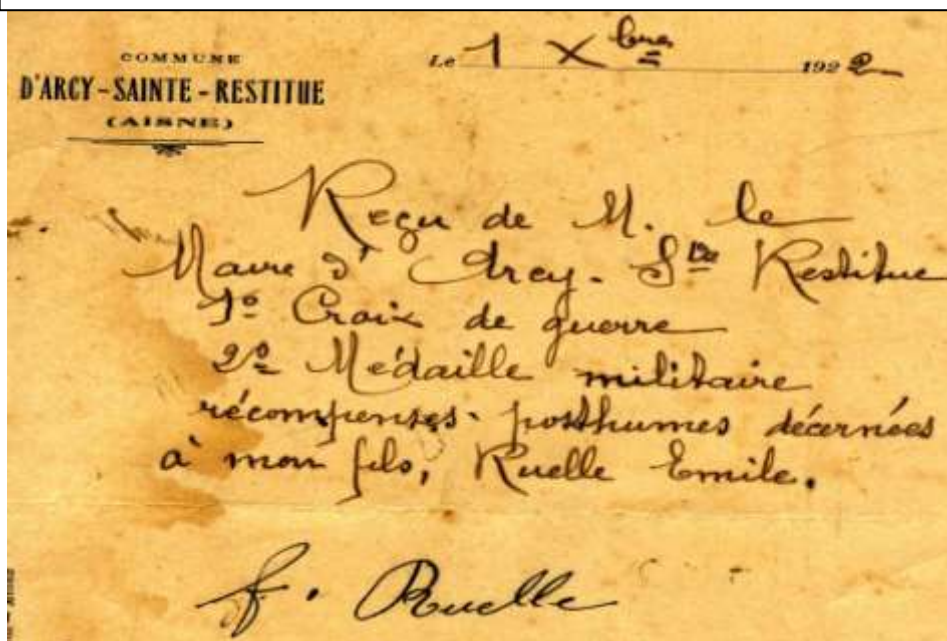 COMMUNE
D'ARCY-SAINTE-RESTITUE
(AISNE)
Le 1 Xbre 1922
Reçu de M. le
Maire d'Arcy-Ste Restitue
1º Croix de guerre
2º Médaille militaire
récompenses posthumes décernées
à mon fils, Ruelle Emile.
f. Ruelle